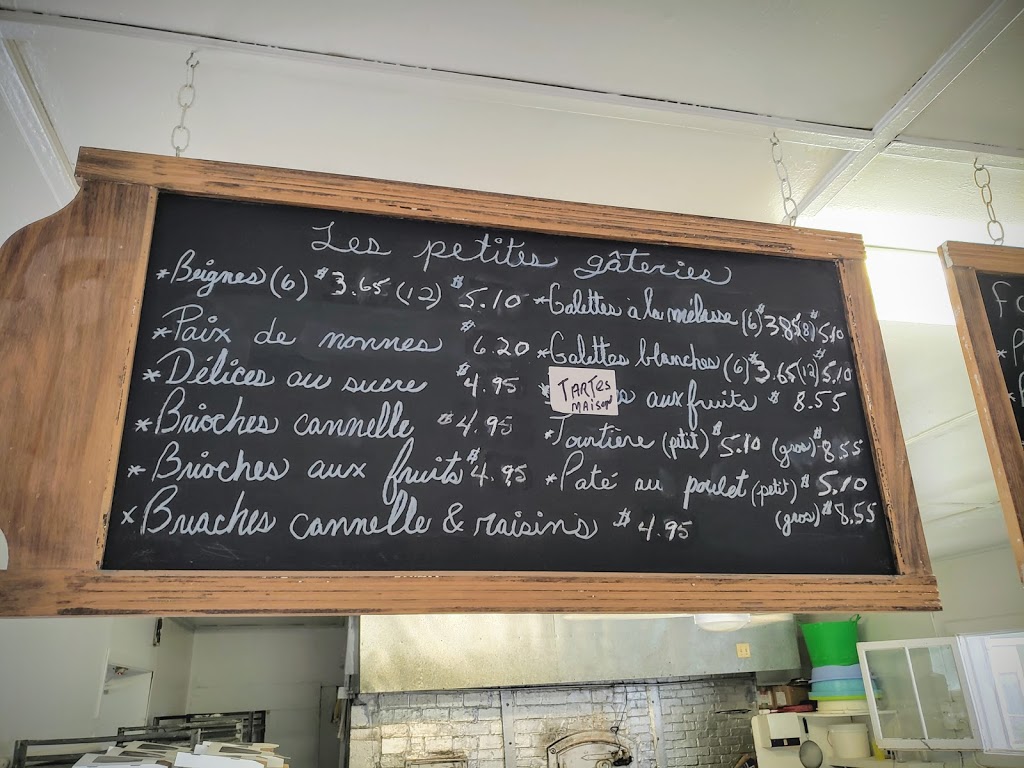 Les petites gâteries
*Beignes (6) $3.65 (12) $5.10
*Paix de nonnes $6.20
*Délices au sucre $4.95
*Brioches cannelle $4.95
*Brioches aux fruits $4.95
*Briaches cannelle & raisins $4.95
*Galettes à la mélasse (6) $3.85 $5.10
*Galettes blanches (6) $3.65 (12) $5.10
TARTES
MAISON
aux fruits $8.55
*Tourtière (petit) $5.10 (gros) $8.55
*Paté au poulet (petit) $5.10
(gros) $8.55